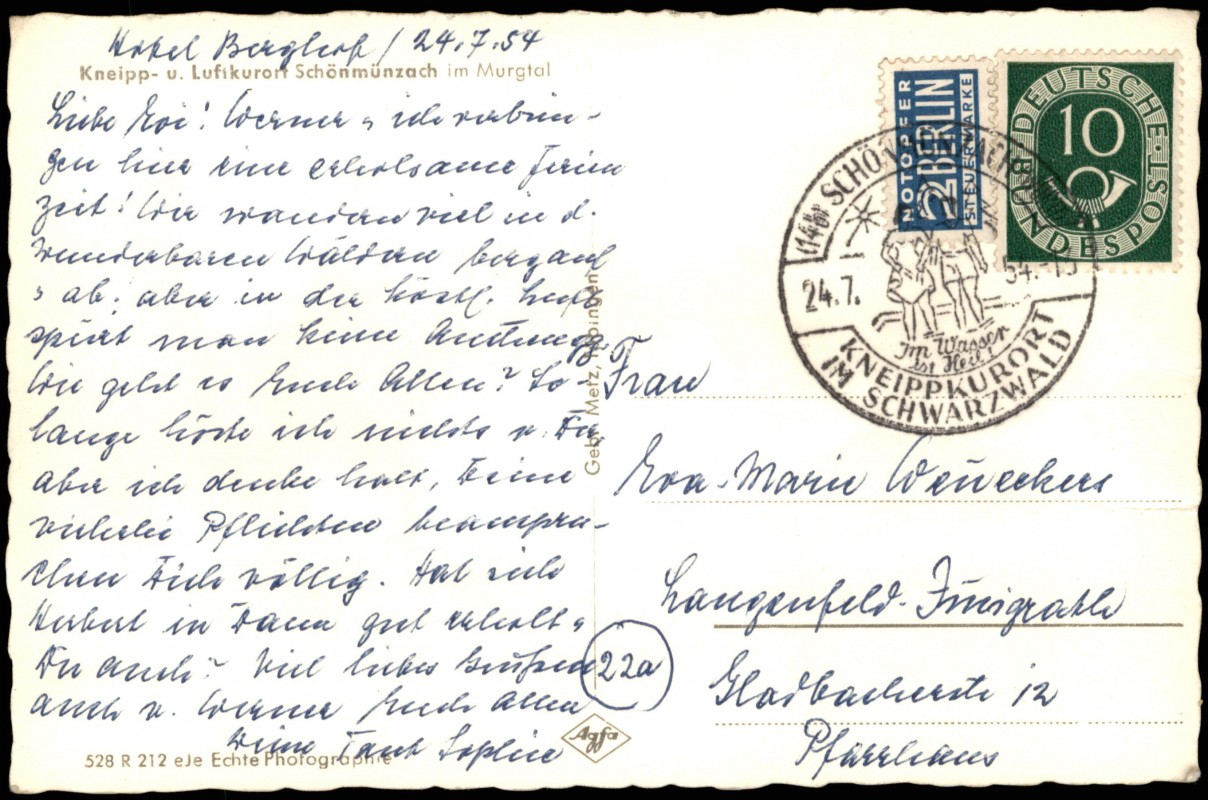 Hotel Berghof / 24.7.54
Kneipp- u. Luftkurort Schönmünzach im Murgtal
Liebe Evi! Werner u. ich verbrin-
gen hier eine erholsame Ferien
zeit! Wir wandern viel in d.
wunderbaren Wäldern bergauf
u. ab, aber in der köstl. Luft
spürt man keine
Wie geht es Euch Allen? So
lange hörte ich nichts v. Dir
aber ich denke halt, Deine
vielerlei Pflichten beanspru-
chen Dich völlig. Hat sich
Herbert in gut erholt u.
Du auch? Viel liebes Grüßen
auch v. Werner Euch Allen
Deine Tante Sophie
528 R 212 eJe Echte Photographie
Gebr. Metz, Tübingen
Agfa
NOTOPFER
2 BERLIN
STEUERMARKE
DEUTSCHE BUNDESPOST
10
(14b) SCHÖNMÜNZACH
24.7. 54.-
Im Wasser
ist Heil!
KNEIPPKURORT
IM SCHWARZWALD
Frau
Eva-Marie
Langenfeld-Immigrath
Gladbacherstr 12
Pfarrhaus
22a